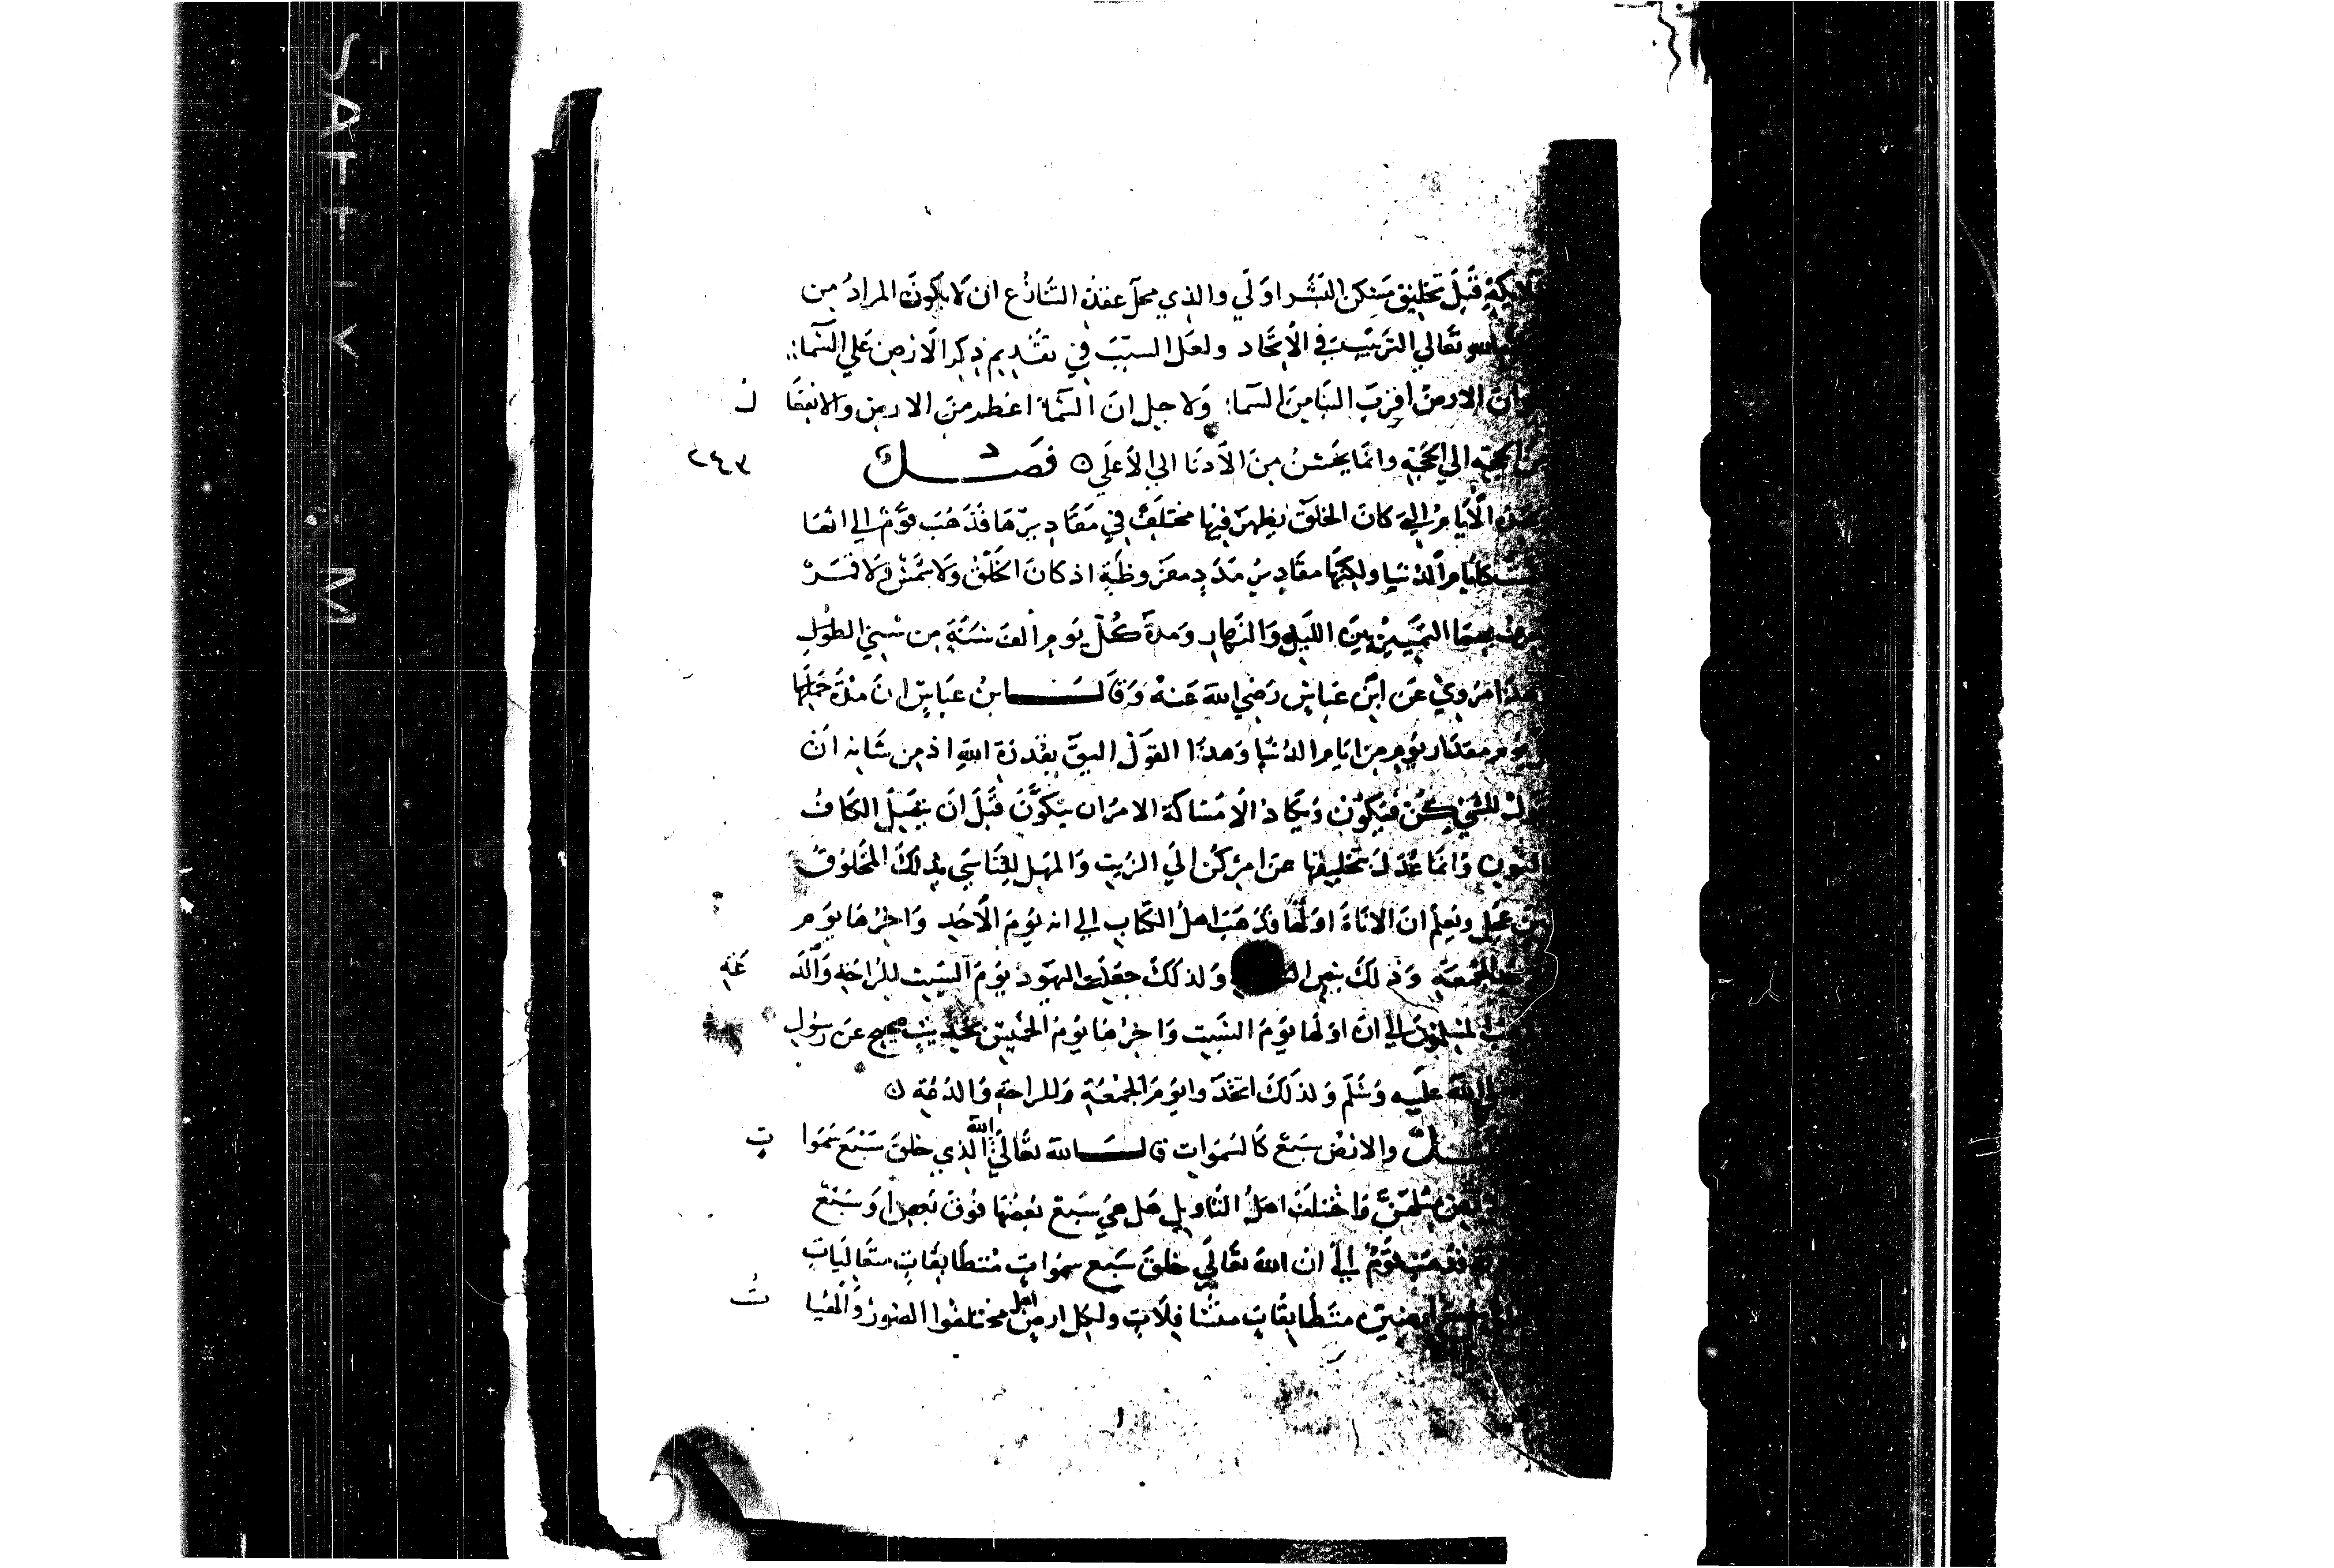 قبل تخليق مسكن البشر اولي والذي محل عقدة التنازع ان لا يكون المراد من
تعالي الترتيب في الاتحاد ولعل السبب في تقديم ذكر الارض علي السماء
ان الارض اقرب الينا من السماء ولاجل ان السماء اعظم من الارض والانتقال
الي الحجة وانما يحسن من الادنا الي الاعلي ه فصل
٢٤٣
الايام التي كان الخلق يظهر فيها مختلف في مقاديرها فذهب قوم الي انها
كايام الدنيا ولكنها مقادير مدد مفروضة اذ كان الخلق ولا شمس ولا قمر
بهما التمييز بين الليل والنهار ومدة كل يوم الف سنة من سني الطول
هذا مروي عن ابن عباس رضي الله عنه وقال ابن عباس ان مدة
يوم مقدار يوم من ايام الدنيا وهذا القول اليق بقدرة الله اذ من شانه ان
للشي كن فيكون الامر ان يتكون قبل ان الكاف
النون وانما عدل تخليقها عن امر كن الي الريث والمهل بذلك المخلوق
عجل ويعلم ان الاناة اولها فذهب اهل الكتاب الي انه يوم الاحد واخرها يوم
الجمعة وذلك بنص ولذلك جعلت اليهود يوم السبت للراحة والدعة
المسلمون الي ان اولها يوم السبت واخرها يوم الخميس بحديث صحيح عن رسول
الله عليه وسلم ولذلك اتخذوا يوم الجمعة للراحة والدعة ه
والارض سبع كالسموات قال الله تعالي الله الذي خلق سبع سموات
مثلهن واختلف اهل التاويل هل هي سبع بعضها فوق بعض او سبع
فذهب قوم الي ان الله تعالي خلق سبع سموات متطابقات متعاليات
ارضين متطابقات متسافلات ولكل ارض اهل مختلفوا الصور